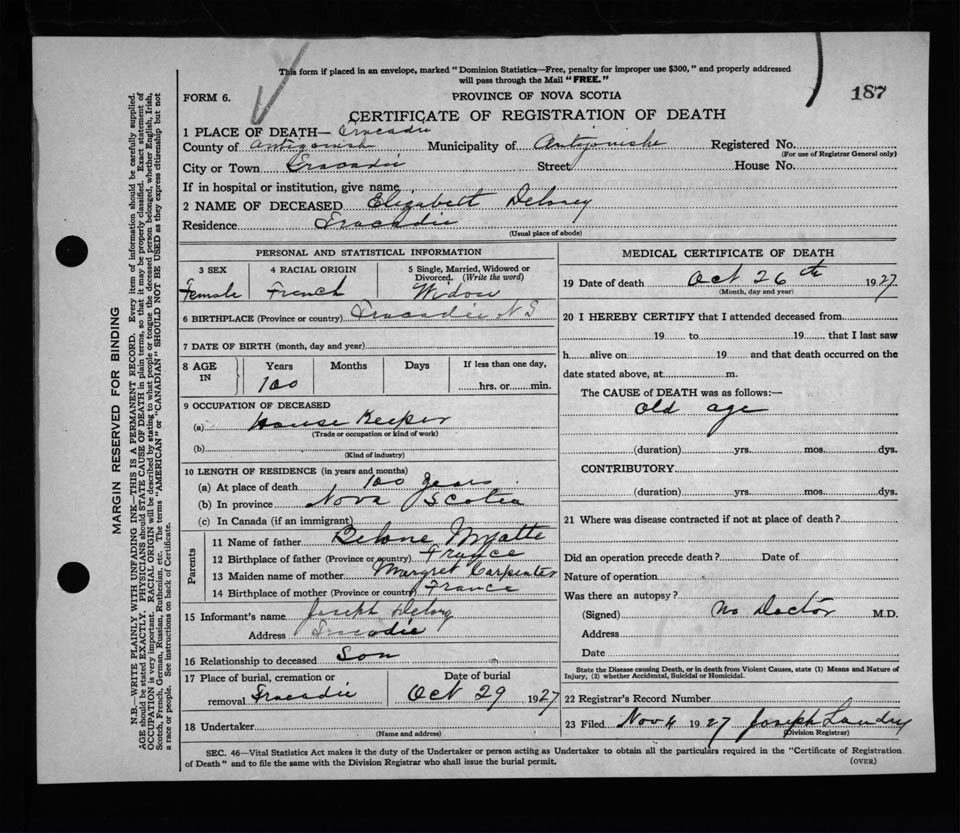 This form if placed in an envelope, marked "Dominion Statistics—Free, penalty for improper use $300," and properly addressed
will pass through the Mail "FREE."
187
FORM 6.
PROVINCE OF NOVA SCOTIA
CERTIFICATE OF REGISTRATION OF DEATH
1 PLACE OF DEATH— Tracadie
County of Antigonish Municipality of Antigonishe Registered No.
(For use of Registrar General only)
City or Town Tracadie Street House No.
If in hospital or institution, give name
2 NAME OF DECEASED Elizabett Delorey
Residence Tracadie
(Usual place of abode)
PERSONAL AND STATISTICAL INFORMATION
3 SEX 4 RACIAL ORIGIN 5 Single, Married, Widowed or
Divorced. (Write the word)
Female French Widow
6 BIRTHPLACE (Province or country) Tracadie N S
7 DATE OF BIRTH (month, day and year)
8 AGE IN Years Months Days If less than one day,
100 hrs. or min.
9 OCCUPATION OF DECEASED
(a) House Keeper
(Trade or occupation or kind of work)
(b)
(Kind of industry)
10 LENGTH OF RESIDENCE (in years and months)
(a) At place of death 100 Years
(b) In province Nova Scotia
(c) In Canada (if an immigrant)
Parents
11 Name of father Belone Myatte
12 Birthplace of father (Province or country) France
13 Maiden name of mother Margret Carpenter
14 Birthplace of mother (Province or country) France
15 Informant's name Joseph Delory
Address Tracadie
16 Relationship to deceased Son
17 Place of burial, cremation or Date of burial
removal Tracadie Oct 29 1927
18 Undertaker
(Name and address)
MEDICAL CERTIFICATE OF DEATH
19 Date of death Oct 26th 1927
(Month, day and year)
20 I HEREBY CERTIFY that I attended deceased from
19 to 19 that I last saw
h alive on 19 and that death occurred on the
date stated above, at m.
The CAUSE of DEATH was as follows:—
old age
(duration) yrs. mos. dys.
CONTRIBUTORY
(duration) yrs. mos. dys.
21 Where was disease contracted if not at place of death?
Did an operation precede death? Date of
Nature of operation
Was there an autopsy?
(Signed) No Doctor M.D.
Address
Date
State the Disease causing Death, or in death from Violent Causes, state (1) Means and Nature of
Injury, (2) whether Accidental, Suicidal or Homicidal.
22 Registrar's Record Number
23 Filed Nov 4 1927 Joseph Landry
(Division Registrar)
SEC. 46—Vital Statistics Act makes it the duty of the Undertaker or person acting as Undertaker to obtain all the particulars required in the "Certificate of Registration
of Death" and to file the same with the Division Registrar who shall issue the burial permit.
(OVER)
MARGIN RESERVED FOR BINDING
N.B.—WRITE PLAINLY WITH UNFADING INK—THIS IS A PERMANENT RECORD. Every item of information should be carefully supplied.
AGE should be stated EXACTLY. PHYSICIANS should STATE CAUSE OF DEATH in plain terms, so that it may be properly classified. Exact statement of
OCCUPATION is very important. RACIAL ORIGIN will be described by stating to what people or tongue the deceased person belonged, whether English, Irish,
Scotch, French, German, Russian, Ruthenian, etc. The terms "AMERICAN" or "CANADIAN" SHOULD NOT BE USED as they express citizenship but not
a race or people. See instructions on back of Certificate.